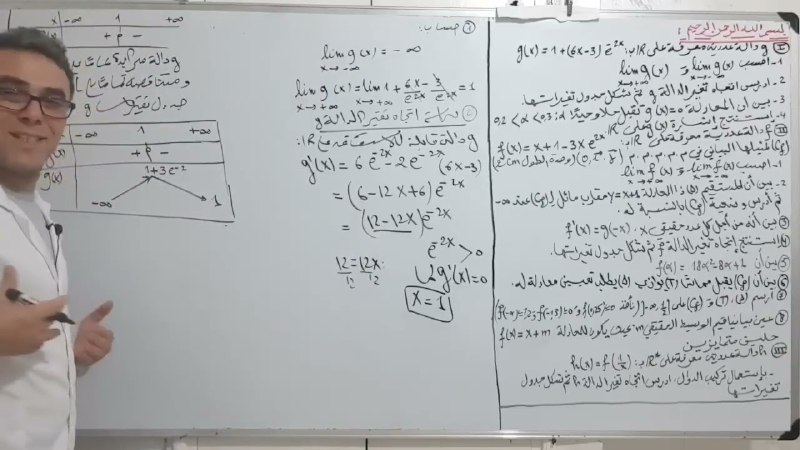 بسم الله الرحمن الرحيم:
I) g دالة عددية معرفة على IR بـ: g(x) = 1 + (6x-3)e^{-2x}
1- احسب lim g(x) x→-∞ و lim g(x) x→+∞
2- ادرس اتجاه تغير الدالة g ثم شكل جدول تغيراتها.
3- بين أن المعادلة g(x)=0 تقبل حلا وحيدا α:
4- استنتج إشارة g(x) على IR
II) f الدالة العددية معرفة على IR بـ: f(x) = x+1-3xe^{-2x}
(Cf) تمثيلها البياني في م م م م (0, i, j) (وحدة الطول 2cm)
1- احسب lim f(x) و lim f(x)
2- بين أن المستقيم (Δ) ذا المعادلة y=x+1 مقارب مائل لـ (Cf) عند +∞
ثم ادرس وضعية (Cf) بالنسبة له.
3) بين أنه من أجل كل عدد حقيقي x: f'(x) = g(-x)
4) استنتج اتجاه تغير الدالة f ثم شكل جدول تغيراتها.
5) بين أن f(α) =
6) بين أن (Cf) يقبل مماسا (T) يوازي (Δ) يطلب تعيين معادلة له.
7) ارسم (Δ), (T) و (Cf) على ]-∞, 1/2]
8) عين بيانيا قيم الوسيط الحقيقي m بحيث يكون للمعادلة f(x) = x+m
حلين متمايزين
III) h دالة عددية معرفة على IR* بـ: h(x) = f(1/x)
- باستعمال تركيب الدوال، ادرس اتجاه تغير الدالة h ثم شكل جدول
تغيراتها
1) حساب:
lim g(x) = -∞
x→-∞
lim g(x) = lim 1 + 6x/e^{2x} - 3/e^{2x} = 1
x→+∞ x→+∞
2) دراسة اتجاه تغير الدالة g
g دالة قابلة للاشتقاق على IR:
g'(x) = 6e^{-2x} - 2e^{-2x}(6x-3)
= (6-12x+6)e^{-2x}
= (12-12x)e^{-2x}
e^{-2x} > 0
12/12 = 12x/12
g'(x)=0
x=1
x -∞ 1 +∞
+ 0 -
g دالة متزايدة تماما
ومتناقصة تماما
جدول تغيرات g
-∞ 1 +∞
+ 0 -
g(x) -∞ 1+3e^{-2} 1